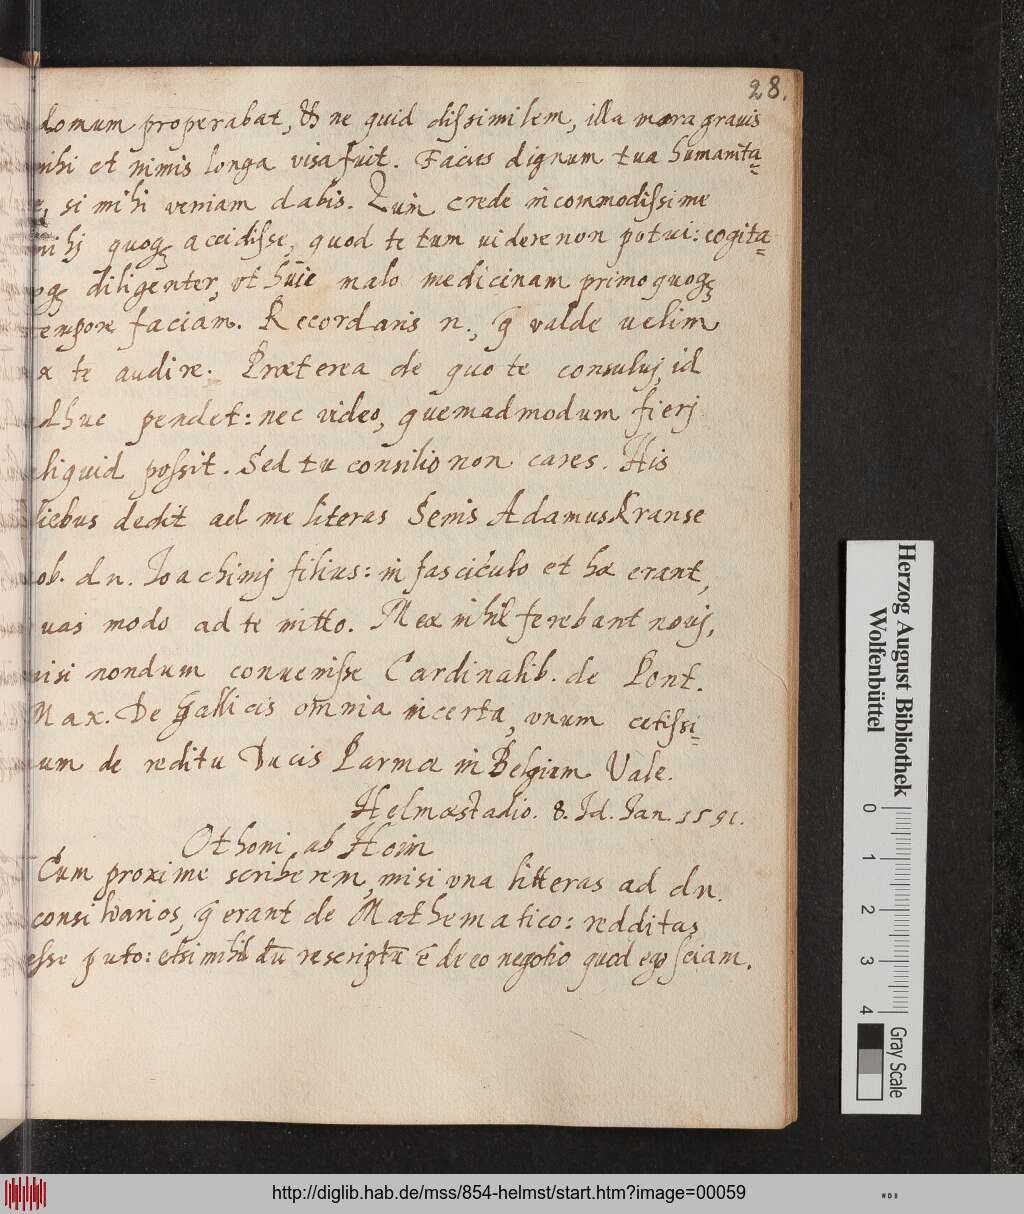 28.
domum properabat, & ne quid dissimilem, illa mora grauis
mihi et nimis longa visa fuit. Facies dignum tua humanita=
te, si mihi veniam dabis. Quin crede incommodissime
mihj quoqȝ accidisse, quod te tum uidere non potui: cogita=
oqȝ diligenter, ut huic malo medicinam primo quoqȝ
tempore faciam. Recordaris n., q̄ valde uelim
ex te audire. Præterea de quo te consuluj, id
adhuc pendet: nec video, quemadmodum fierj
aliquid possit. Sed tu consilio non cares. His
diebus dedit ad me literas Senis Adamus Kranse
ob. dn. Ioachimj filius: in fasciculo et hæ erant,
quas modo ad te mitto. Meæ nihil ferebant nouj,
nisi nondum conuenisse Cardinalib. de Pont.
Max. De Gallicis omnia incerta, vnum cetissi=
mum de reditu Ducis Parmæ in Belgium. Vale.
Helmæstadio. 8. Id. Ian. 1591.
Othoni ab Hoim
Cum proxime scriberem, misi vna litteras ad dn.
consiliarios, q̄ erant de Mathematico: redditas
esse puto: etsi nihil dū rescriptū ē de eo negotio quod ego sciam.
Herzog August Bibliothek
Wolfenbüttel
0 1 2 3 4
Gray Scale
http://diglib.hab.de/mss/854-helmst/start.htm?image=00059